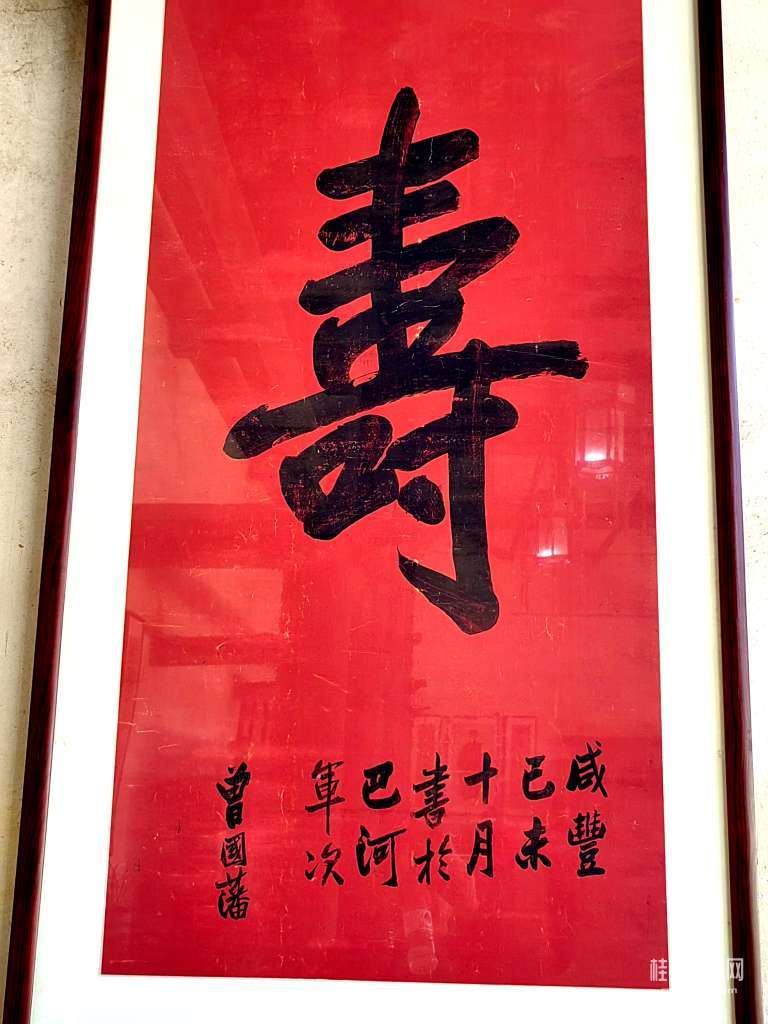 壽
咸豐
己未
十月
書於
巴河
軍次
曾國藩